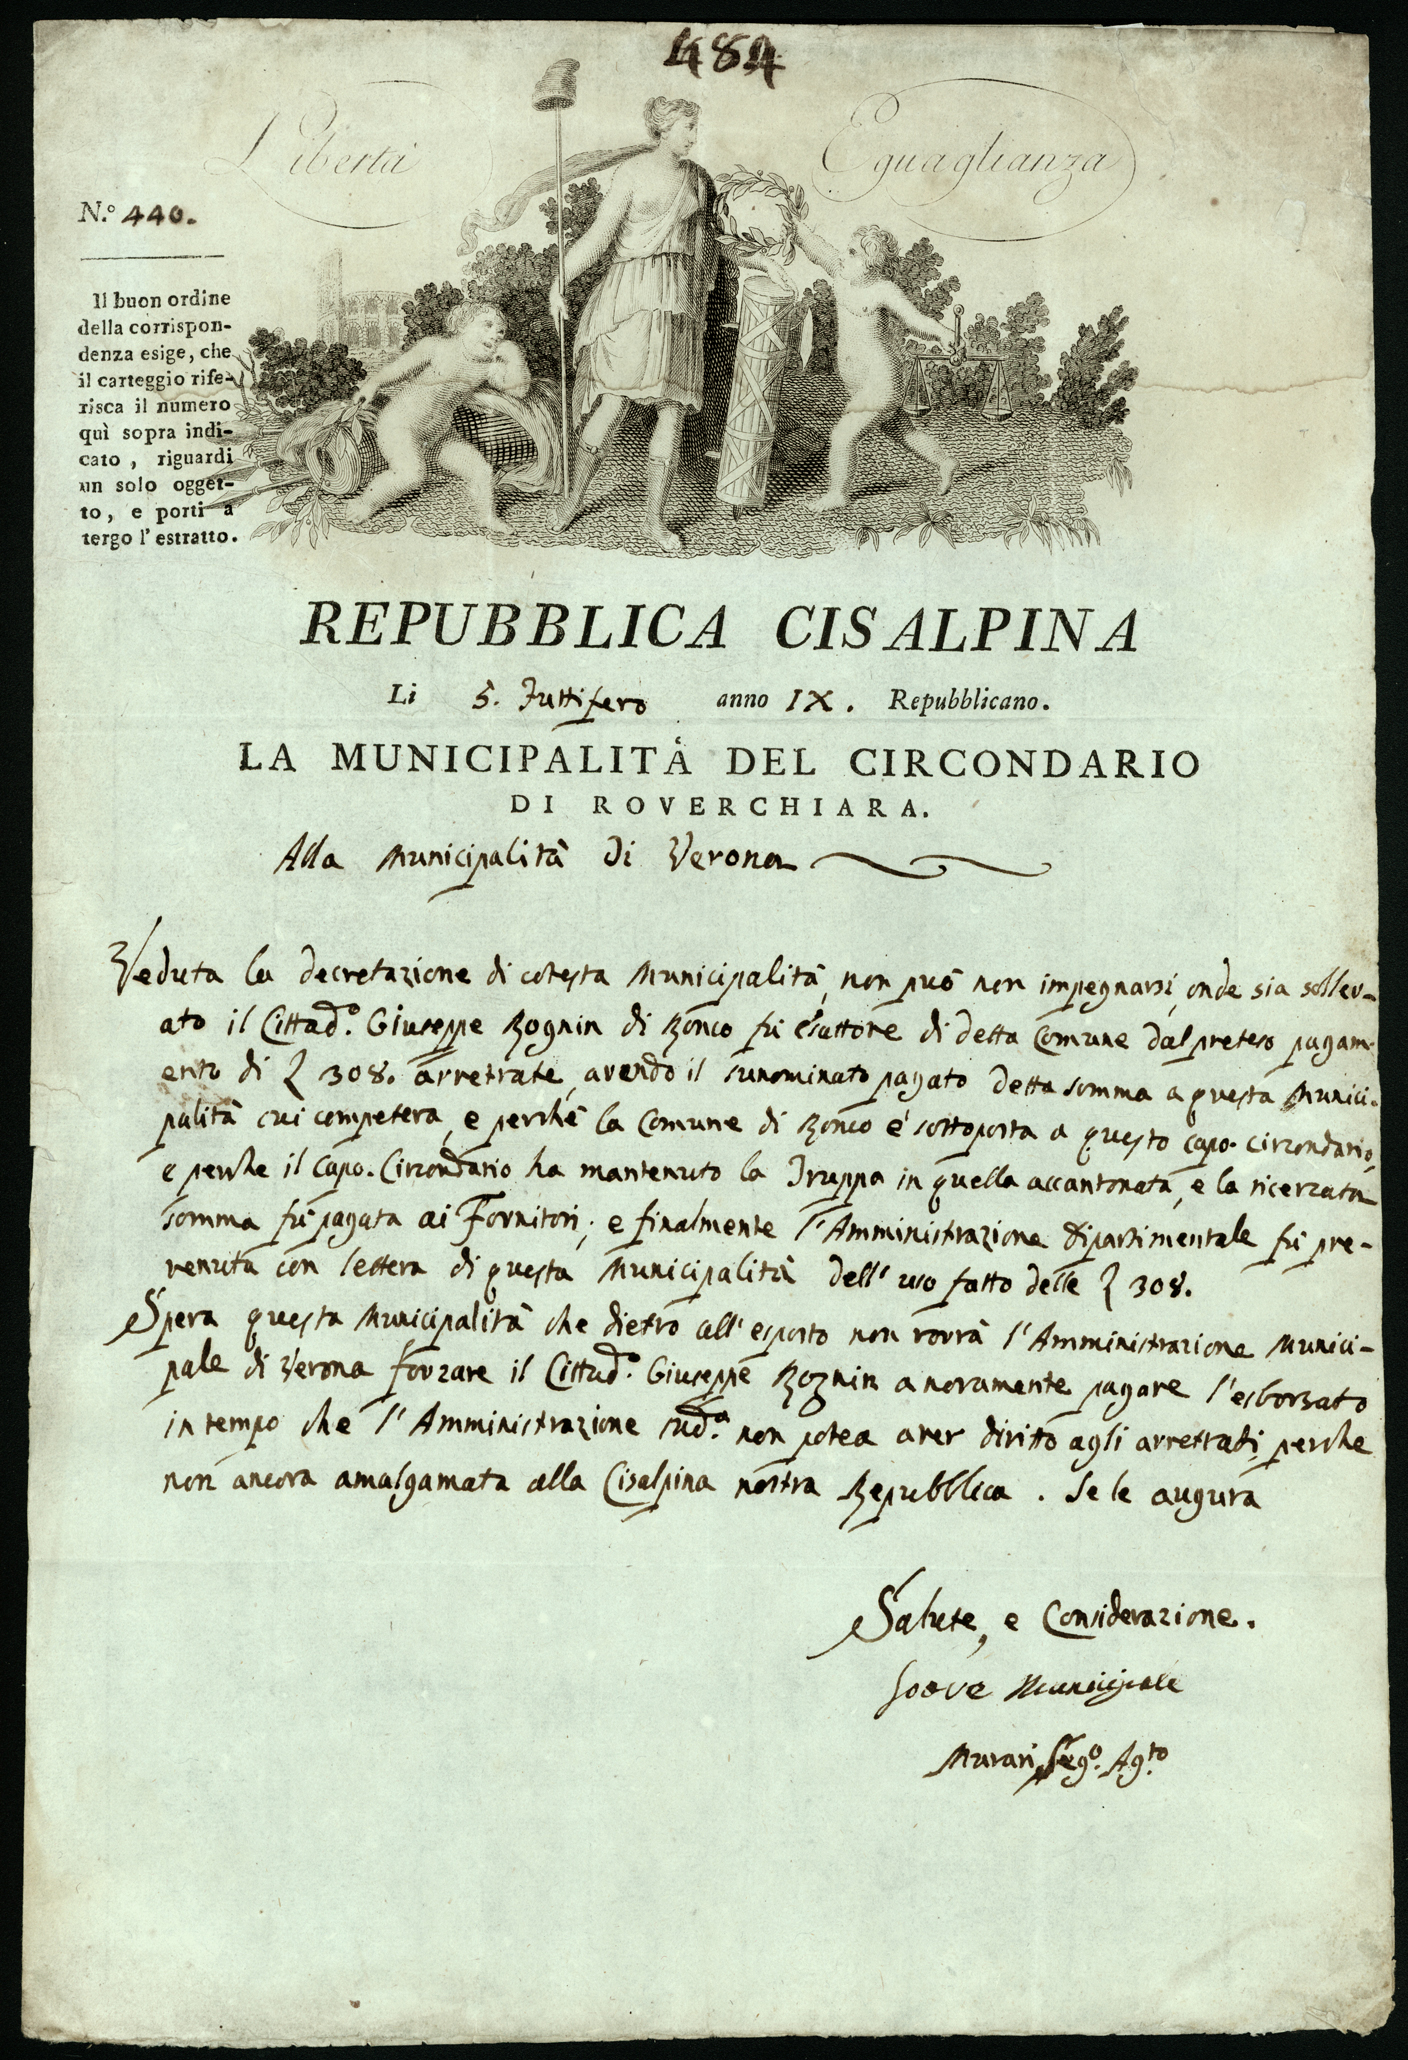 484
Libertà
Eguaglianza
N.º 440.
Il buon ordine
della corrispon-
denza esige, che
il carteggio rife-
risca il numero
quì sopra indi-
cato, riguardi
un solo ogget-
to, e porti a
tergo l'estratto.
REPUBBLICA CISALPINA
Li 5. Fruttifero anno IX. Repubblicano.
LA MUNICIPALITÀ DEL CIRCONDARIO
DI ROVERCHIARA.
Alla Municipalità di Verona
Veduta la decretazione di cotesta Municipalità, non può non impegnarsi, onde sia sollev-
ato il Cittad.º Giuseppe Rognin di Ronco fù Esattore di detta Comune dal preteso pagam-
ento di £ 308. arretrate, avendo il sunominato pagato detta somma a questa Munici-
palità cui competeva, e perchè la Comune di Ronco è sottoposta a questo capo-circondario,
e perche il Capo-Circondario ha mantenuto la Truppa in quella accantonata, e la ricercata
somma fù pagata ai Fornitori; e finalmente l'Amministrazione dipartimentale fù pre-
venuta con lettera di questa Municipalità dell'uso fatto delle £ 308.
Spera questa Municipalità che dietro all'esposto non vorrà l'Amministrazione Munici-
pale di Verona forzare il Cittad.º Giuseppe Rognin a novamente pagare l'esborsato
in tempo che l'Amministrazione sud.ª non potea aver diritto agli arretrati, perche
non ancora amalgamata alla Cisalpina nostra Repubblica. Se le augura
Salute, e Considerazione.
Soave Municipale
Murari Seg.º Ag.to